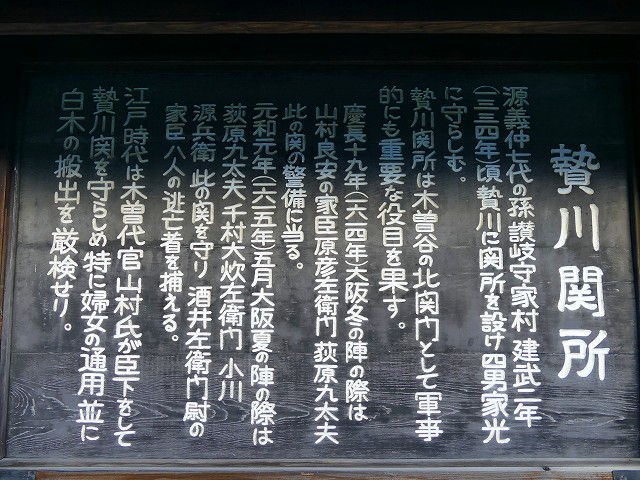 贄川関所
源義仲七代の孫讃岐守家村 建武二年
(一三三四年)頃贄川に関所を設け四男家光
に守らしむ。
贄川関所は木曽谷の北関門として軍事
的にも重要な役目を果す。
慶長十九年(一六一四年)大阪冬の陣の際は
山村良安の家臣原彦左衛門 荻原九太夫
此の関の警備に当る。
元和元年(一六一五年)五月大阪夏の陣の際は
荻原九太夫千村大炊左衛門 小川
源兵衛 此の関を守り 酒井左衛門尉の
家臣八人の逃亡者を捕える。
江戸時代は木曽代官山村氏が臣下をして
贄川関を守らしめ特に婦女の通用並に
白木の搬出を厳検せり。